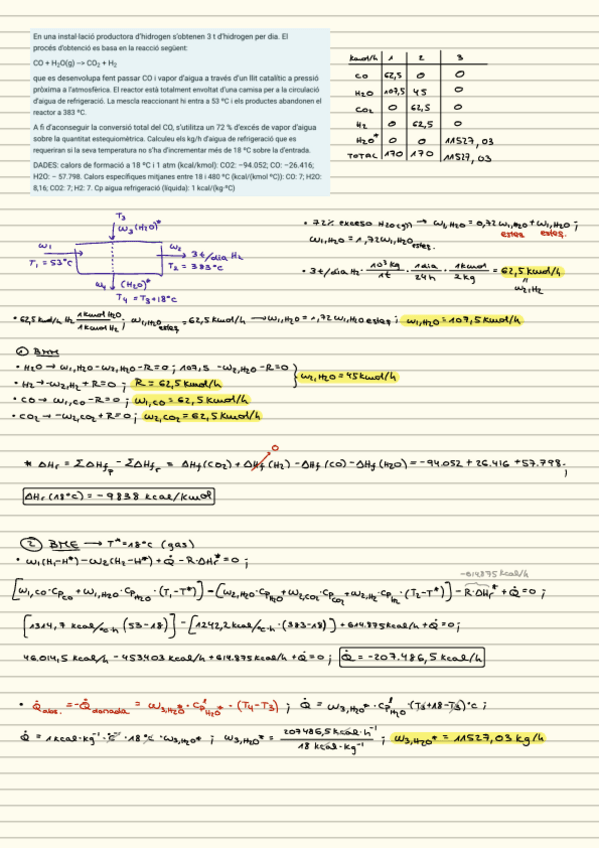 En una instal·lació productora d'hidrogen s'obtenen 3 t d'hidrogen per dia. El
procés d'obtenció es basa en la reacció següent:
CO + H2O(g) --> CO2 + H2
que es desenvolupa fent passar CO i vapor d'aigua a través d'un llit catalític a pressió
pròxima a l'atmosfèrica. El reactor està totalment envoltat d'una camisa per a la circulació
d'aigua de refrigeració. La mescla reaccionant hi entra a 53 ºC i els productes abandonen el
reactor a 383 ºC.
A fi d'aconseguir la conversió total del CO, s'utilitza un 72 % d'excés de vapor d'aigua
sobre la quantitat estequiomètrica. Calculeu els kg/h d'aigua de refrigeració que es
requeriran si la seva temperatura no s'ha d'incrementar més de 18 ºC sobre la d'entrada.
DADES: calors de formació a 18 ºC i 1 atm (kcal/kmol): CO2: –94.052; CO: –26.416;
H2O: – 57.798. Calors específiques mitjanes entre 18 i 480 ºC (kcal/(kmol ºC)): CO: 7; H2O:
8,16; CO2: 7; H2: 7. Cp aigua refrigeració (líquida): 1 kcal/(kg·ºC)
kmol/h 1 2 3
CO 62,5 0 0
H2O 107,5 45 0
CO2 0 62,5 0
H2 0 62,5 0
H2O* 0 0 11527,03
TOTAL 170 170 11527,03
T3
ω3 (H2O)*
ω1
T1 = 53ºC
ω2
3t/dia H2
T2 = 383ºC
ω4 (H2O)*
T4 = T3+18ºC
• 72% exceso H2O(g) → ω1,H2O = 0,72ω1,H2O esteq. + ω1,H2O esteq. ;
ω1,H2O = 1,72ω1,H2O esteq.
• 3t/dia H2 · 10³kg/1t · 1dia/24h · 1kmol/2kg = 62,5 kmol/h
ω2,H2
• 62,5 kmol/h H2 1kmol H2O/1kmol H2 ; ω1,H2O esteq = 62,5 kmol/h → ω1,H2O = 1,72 ω1,H2O esteq ; ω1,H2O = 107,5 kmol/h
① BMM
• H2O → ω1,H2O - ω2,H2O - R = 0 ; 107,5 - ω2,H2O - R = 0 } ω2,H2O = 45kmol/h
• H2 → -ω2,H2 + R = 0 ; R = 62,5 kmol/h
• CO → ω1,CO - R = 0 ; ω1,CO = 62,5 kmol/h
• CO2 → -ω2,CO2 + R = 0 ; ω2,CO2 = 62,5 kmol/h
* ΔHr = ΣΔHfp - ΣΔHfr = ΔHf(CO2) + ΔHf(H2) - ΔHf(CO) - ΔHf(H2O) = -94.052 + 26.416 + 57.798 ;
0
ΔHr(18ºC) = -9838 kcal/kmol
② BME → T* = 18ºC (gas)
• ω1(H1-H*) - ω2(H2-H*) + Q̇ - R·ΔHr* = 0 ;
-614875 kcal/h
[ω1,CO·CpCO + ω1,H2O·CpH2O·(T1-T*)] - [ω2,H2O·CpH2O + ω2,CO2·CpCO2 + ω2,H2·CpH2·(T2-T*)] - R·ΔHr* + Q̇ = 0 ;
[1314,7 kcal/ºC·h (53-18)] - [1242,2 kcal/ºC·h · (383-18)] + 614.875 kcal/h + Q̇ = 0 ;
46.014,5 kcal/h - 453403 kcal/h + 614.875 kcal/h + Q̇ = 0 ; Q̇ = -207.486,5 kcal/h
• Q̇abs. = -Q̇donada = ω3,H2O* · CpˡH2O* · (T4-T3) ; Q̇ = ω3,H2O* · CpˡH2O · (T3+18-T3)ºC ;
Q̇ = 1 kcal·kg⁻¹·ºC⁻¹·18ºC·ω3,H2O* ; ω3,H2O* = 207486,5 kcal·h⁻¹/18 kcal·kg⁻¹ ; ω3,H2O* = 11527,03 kg/h